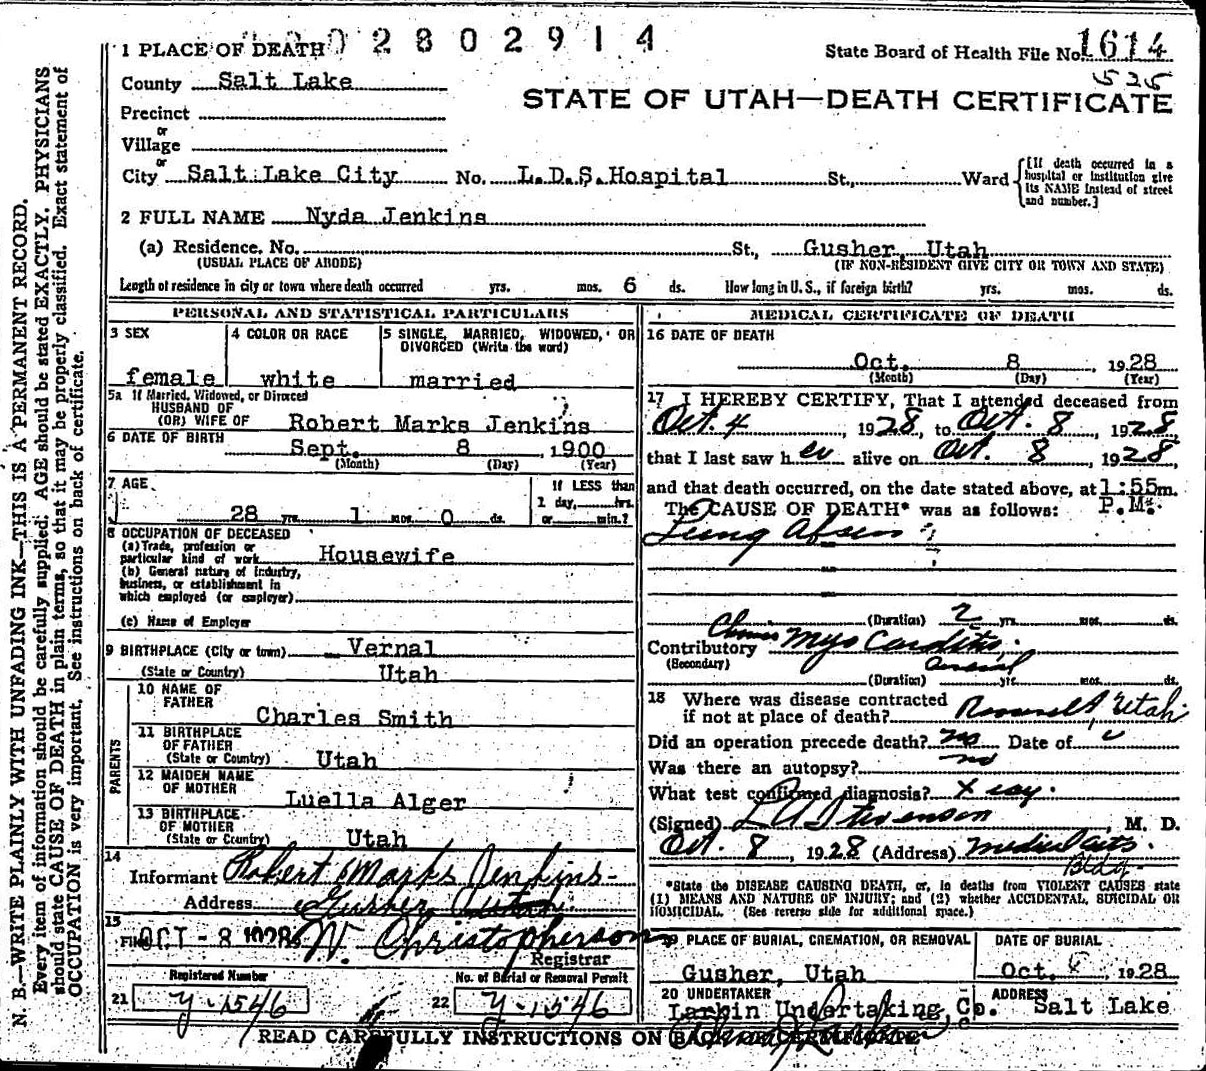 02802914
1 PLACE OF DEATH
State Board of Health File No. 1614
525
County Salt Lake
STATE OF UTAH—DEATH CERTIFICATE
Precinct
or
Village
or
City Salt Lake City No. L.D.S. Hospital St., Ward
[If death occurred in a
hospital or institution give
its NAME instead of street
and number.]
2 FULL NAME Nyda Jenkins
(a) Residence, No. St., Gusher, Utah
(USUAL PLACE OF ABODE) (IF NON-RESIDENT GIVE CITY OR TOWN AND STATE)
Length of residence in city or town where death occurred yrs. mos. 6 ds. How long in U. S., if foreign birth? yrs. mos. ds.
PERSONAL AND STATISTICAL PARTICULARS
3 SEX
female
4 COLOR OR RACE
white
5 SINGLE, MARRIED, WIDOWED, OR
DIVORCED (Write the word)
married
5a If Married, Widowed, or Divorced
HUSBAND OF
(OR) WIFE OF Robert Marks Jenkins
6 DATE OF BIRTH
Sept. 8, 1900
(Month) (Day) (Year)
7 AGE
28 yrs. 1 mos. 0 ds.
If LESS than
1 day, hrs.
or min.?
8 OCCUPATION OF DECEASED
(a) Trade, profession or
particular kind of work Housewife
(b) General nature of industry,
business, or establishment in
which employed (or employer)
(c) Name of Employer
9 BIRTHPLACE (City or town) Vernal
(State or Country) Utah
PARENTS
10 NAME OF
FATHER
Charles Smith
11 BIRTHPLACE
OF FATHER
(State or Country) Utah
12 MAIDEN NAME
OF MOTHER
Luella Alger
13 BIRTHPLACE
OF MOTHER
(State or Country) Utah
14
Informant Robert Marks Jenkins
Address Gusher Utah
15
Filed OCT - 8 1928 W. Christopherson
Registrar
Registered Number
21 y-1546
No. of Burial or Removal Permit
22 y-1546
MEDICAL CERTIFICATE OF DEATH
16 DATE OF DEATH
Oct. 8, 1928
(Month) (Day) (Year)
17 I HEREBY CERTIFY, That I attended deceased from
Oct. 4, 1928, to Oct. 8, 1928
that I last saw her alive on Oct. 8, 1928,
and that death occurred, on the date stated above, at 1:55m.
P.M.
The CAUSE OF DEATH* was as follows:
Lung Abscess
(Duration) 2 yrs. mos. ds.
Contributory Chronic Myocarditis
(Secondary)
(Duration) yrs. mos. ds.
18 Where was disease contracted
if not at place of death? Roosevelt, Utah
Did an operation precede death? no Date of
Was there an autopsy? no
What test confirmed diagnosis? X ray.
(Signed) L A Stevenson, M. D.
Oct. 8, 1928 (Address) Medical Arts.
Bldg.
*State the DISEASE CAUSING DEATH, or, in deaths from VIOLENT CAUSES state
(1) MEANS AND NATURE OF INJURY; and (2) whether ACCIDENTAL, SUICIDAL OR
HOMICIDAL. (See reverse side for additional space.)
19 PLACE OF BURIAL, CREMATION, OR REMOVAL
Gusher, Utah
DATE OF BURIAL
Oct. 1928
20 UNDERTAKER
Larkin Undertaking Co.
ADDRESS
Salt Lake
READ CAREFULLY INSTRUCTIONS ON BACK OF CERTIFICATE
N. B.—WRITE PLAINLY WITH UNFADING INK—THIS IS A PERMANENT RECORD.
Every item of information should be carefully supplied. AGE should be stated EXACTLY. PHYSICIANS
should state CAUSE OF DEATH in plain terms, so that it may be properly classified. Exact statement of
OCCUPATION is very important. See instructions on back of certificate.